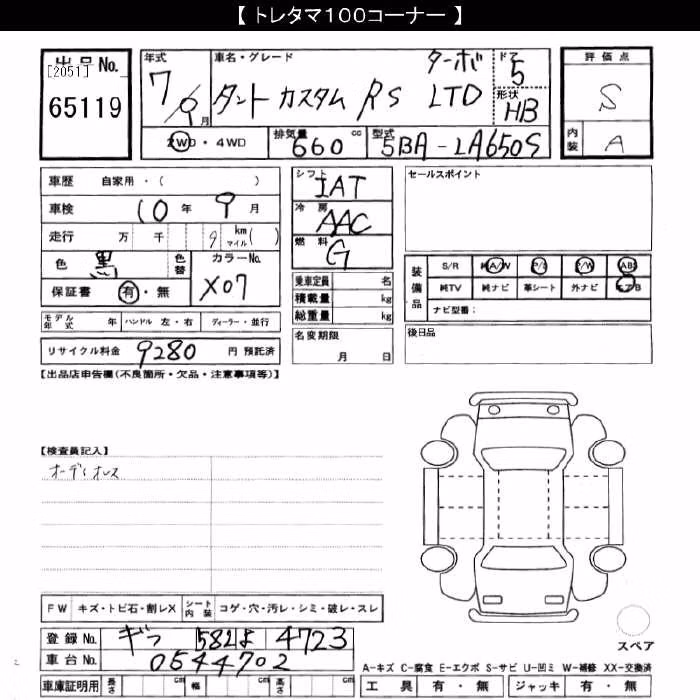 【 トレタマ100コーナー 】
出品No.
[2051]
65119
年式 7/9月
車名・グレード タント カスタム RS ターボ LTD
ドア 5
形状 HB
2WD・4WD
排気量 660 cc
型式 5BA-LA650S
評価点 S
内装 A
車歴 自家用・( )
車検 10年 9月
走行 万 千 9 km マイル( )
色 黒 色替
カラーNo. X07
保証書 有・無
モデル年式 年 ハンドル 左・右 ディーラー・並行
リサイクル料金 9280 円 預託済
シフト IAT
冷房 AAC
燃料 G
乗車定員 名
積載量 kg
総重量 kg
名変期限 月 日
セールスポイント
装備品
S/R 純A/W P/S P/W ABS
純TV 純ナビ 革シート 外ナビ エアB
ナビ型番:
後日品
【出品店申告欄(不良箇所・欠品・注意事項等)】
【検査員記入】
オーディオレス
FW キズ・トビ石・割レX シート内装 コゲ・穴・汚レ・シミ・破レ・スレ
登録No. ギフ 582よ 4723
車台No. 0544702
車庫証明用 長さ cm 幅 cm 高さ cm
スペア
A-キズ C-腐食 E-エクボ S-サビ U-凹ミ W-補修 XX-交換済
工具 有・無 ジャッキ 有・無